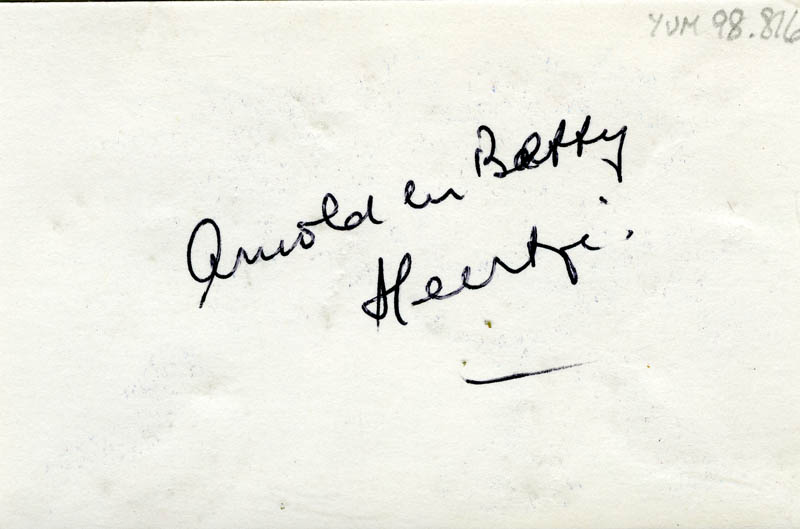 YVM 98.816
Arnold en Betty
Heertje.